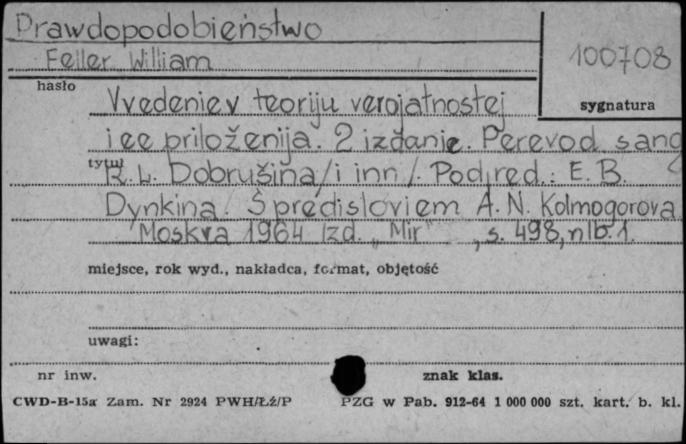 Prawdopodobieństwo
Feller William
100708
hasło
sygnatura
Vvedenie v teoriju verojatnostej
i ee priloženija. 2 izdanie. Perevod s ang
tytuł
R. L. Dobrušina /i inn./. Pod red.: E. B.
Dynkina. S predisloviem A. N. Kolmogorova
Moskva 1964 Izd. „Mir", s. 498, nlb. 1.
miejsce, rok wyd., nakładca, format, objętość
uwagi:
nr inw.
znak klas.
CWD-B-15a Zam. Nr 2924 PWH/Łż/P
PZG w Pab. 912-64 1 000 000 szt. kart. b. kl.